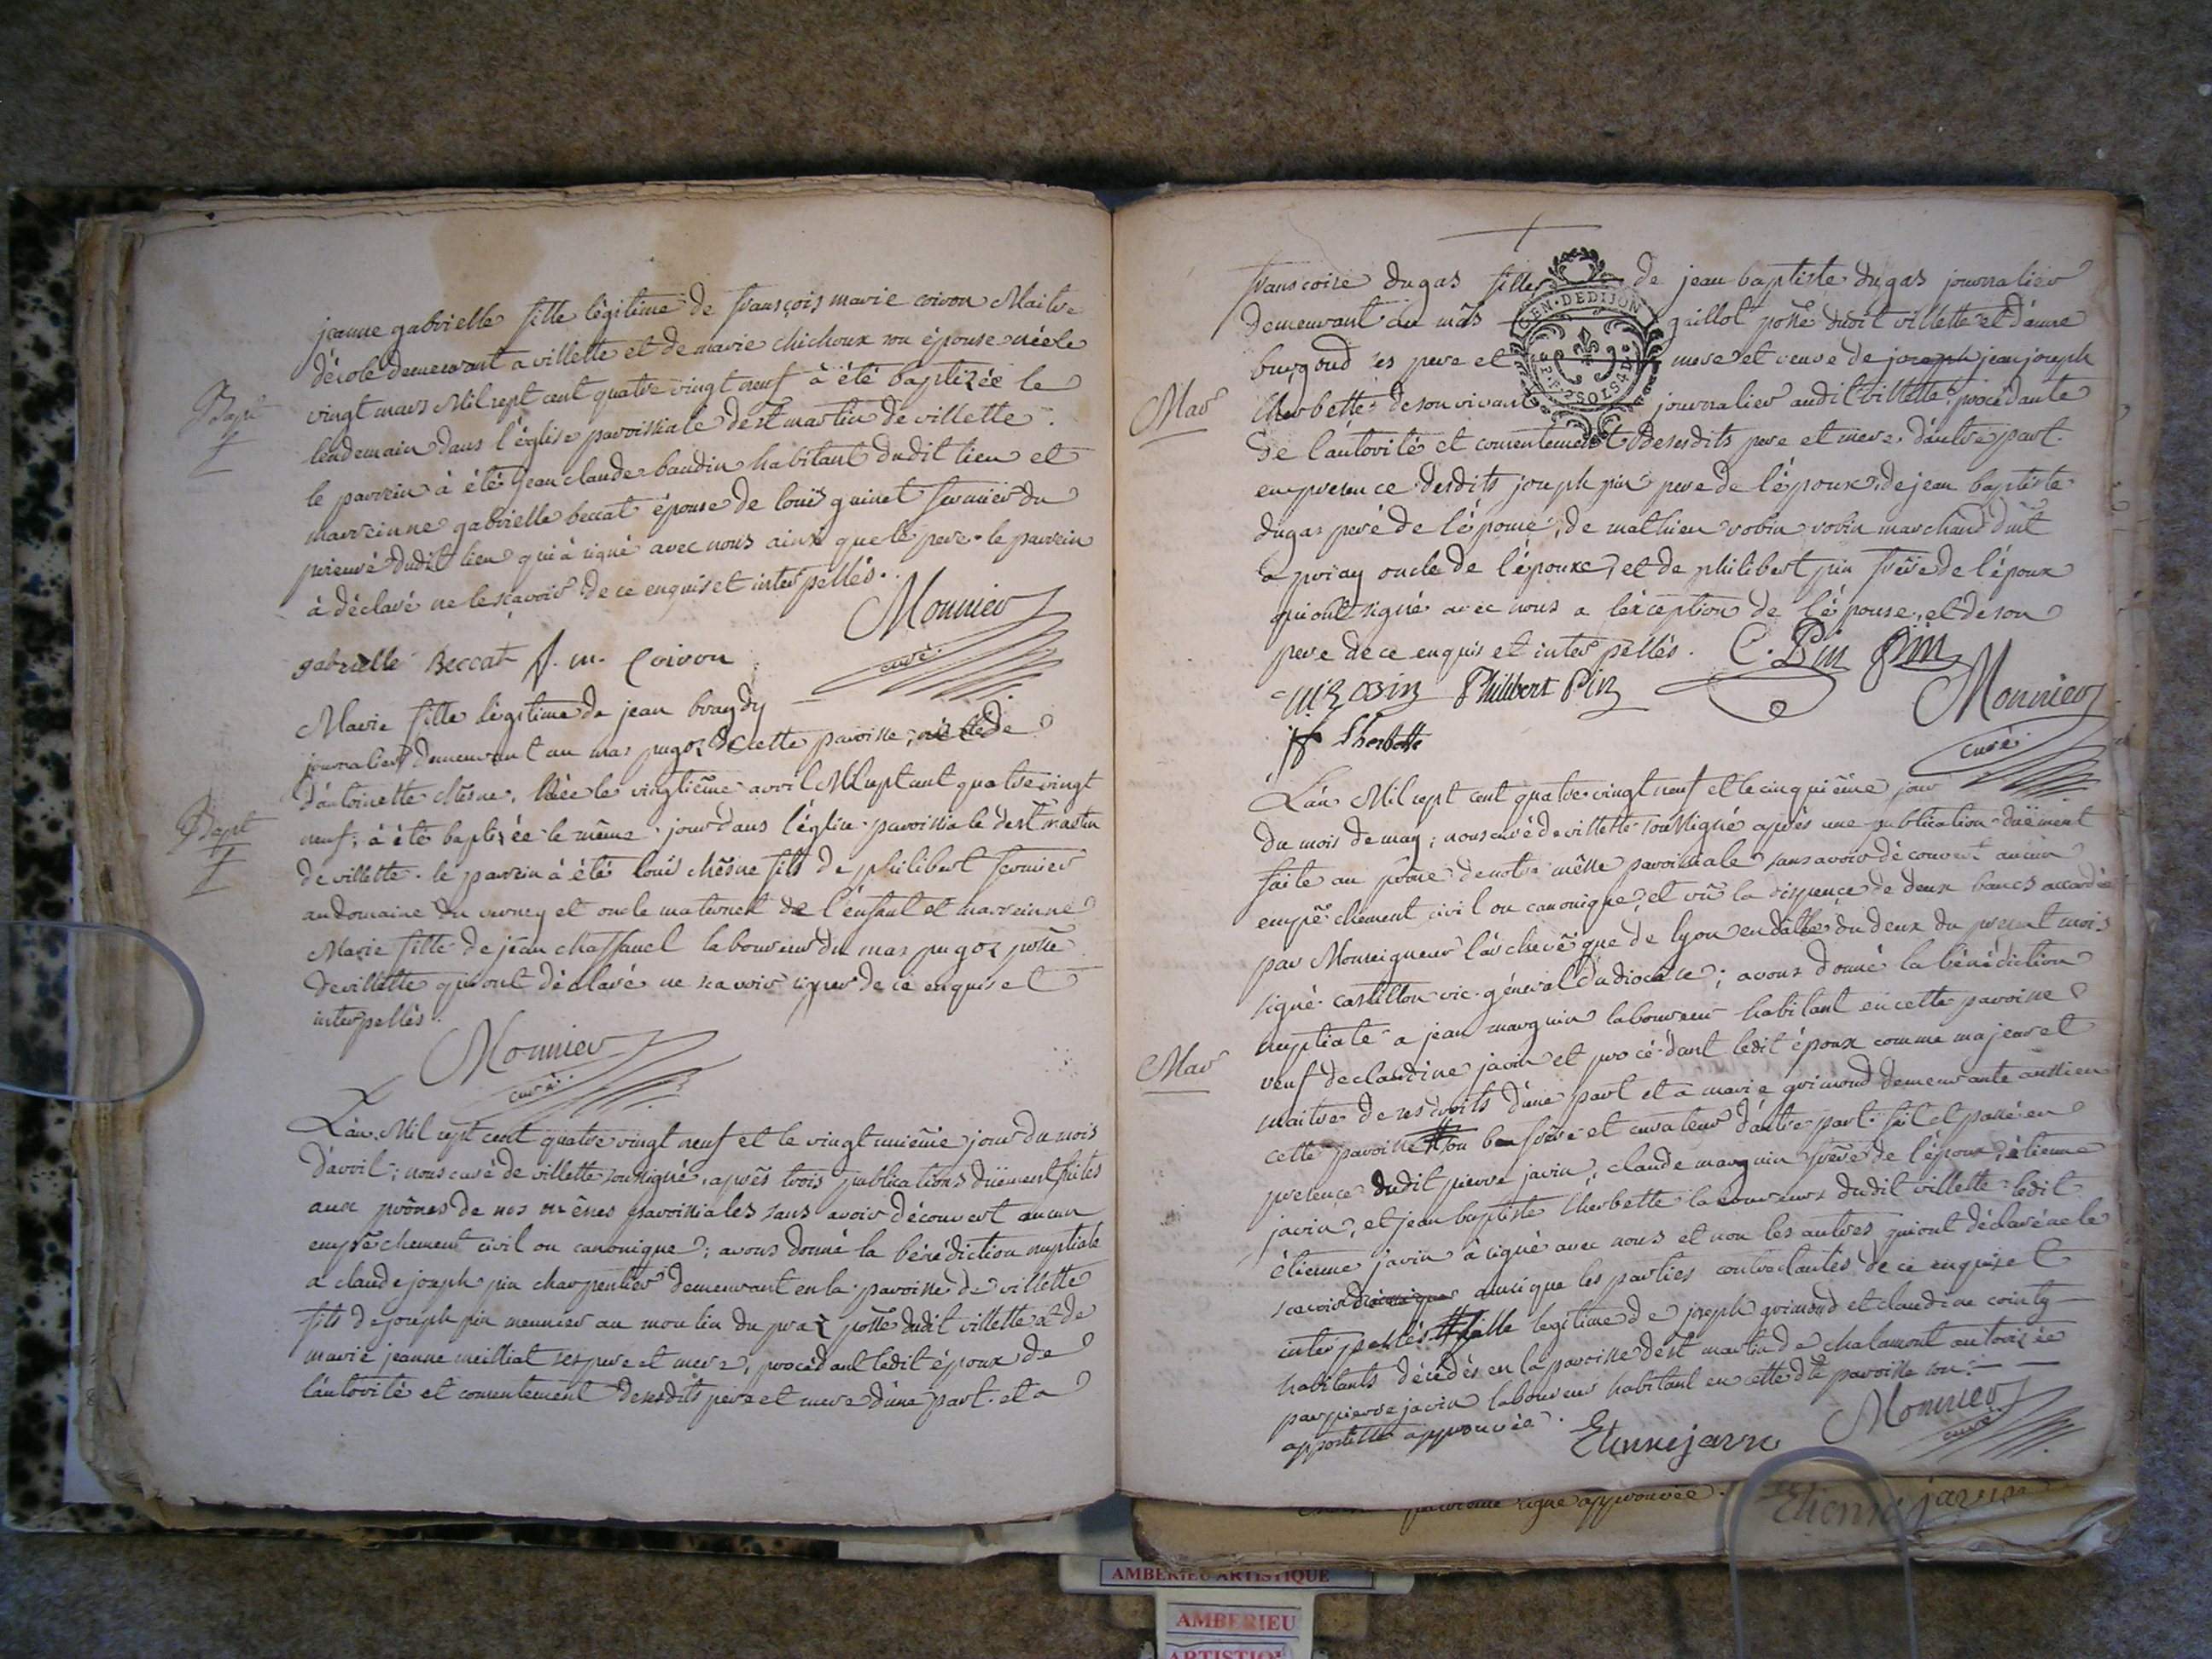 jeanne gabrielle fille légitime de françois marie coivon Maitre
d'école demeurant a villette et de marie chichoux son épouse née le
Bapt
vingt mars Mil sept cent quatre vingt neuf à été baptizée le
lendemain dans l'église paroissiale de st martin de villette.
le parrein à été jean claude baudin habitant dudit lieu et
marreinne gabrielle beccat épouse de louis guinet fermier du
prieuré dudit lieu qui à signé avec nous ainsi que le pere. le parrein
à déclaré ne le sçavoir de ce enquis et interpellés.
Monnier
curé
gabrielle Beccat f. m. Coivon
Marie fille légitime de jean
journalier demeurant au mas pugoz de cette paroisse, et de
Bapt
d'antoinette chêsne. Née le vingtième avril Mil sept cent quatre vingt
neuf; à été baptizée le même jour dans l'église paroissiale de st martin
de villette. le parrein à été louis chêsne fils de philibert fermier
au domaine du verney et oncle maternel de l'enfant et marreinne
Marie fille de jean chaffanel laboureur du mas pugoz psse
de villette qui ont déclaré ne sçavoir signer de ce enquis et
interpellés.
Monnier
curé
L'an Mil sept cent quatre vingt neuf et le vingt unième jour du mois
d'avril; nous curé de villette soussigné, après trois publications düement faites
aux prônes de nos mêsses paroissiales sans avoir découvert aucun
empêchement civil ou canonique; avons donné la bénédiction nuptiale
a claude joseph pin charpentier demeurant en la paroisse de villette
fils de joseph pin meunier au moulin du praz psse dudit villette et de
marie jeanne meilliat ses pere et mere, procédant ledit époux de
l'autorité et consentement de sesdits pere et mere d'une part. et a
françoise dugas fille de jean baptiste dugas journalier
demeurant au mâs gaillot psse dudit villette et d'anne
GEN. DE DIJON
burgoud ses pere et mere et veuve de joseph jean joseph
Mar
cherbette de son vivant journalier audit villette, procédante
de l'autorité et consentement de sesdits pere et mere d'autre part.
en présence desdits joseph pin pere de l'époux, de jean baptiste
dugas peré de l'épouse, de mathieu robin robin marchand
a priay oncle de l'époux, et de philibert pin frère de l'époux
qui ont signé avec nous a l'exception de l'épouse, et de son
pere de ce enquis et interpellés. C. Pin Pin
Monnier
M Robin Philibert Pin
curé
Cherbette
L'an Mil sept cent quatre vingt neuf et le cinquième jour
du mois de may; nous curé de villette soussigné après une publication düement
faite au prône de notre mêsse paroissiale sans avoir découvert aucun
empêchement civil ou canonique, et vû la dispence de deux bancs accordée
par Monseigneur l'archevêque de lyon en datte du deux du present mois
signé castillon vic. général du diocèse; avons donné la bénédiction
Mar
nuptiale a jean marguin laboureur habitant en cette paroisse
veuf de claudine javin et procédant ledit époux comme majeur et
maitre de ses droits d'une part et a marie grimond demeurante aussi en
cette paroisse # son beaufrere et curateur d'autre part. fait et passé en
presence dudit pierre javin, claude marguin frère de l'époux, étienne
javin, et jean baptiste cherbette laboureurs dudit villette. ledit
étienne javin à signé avec nous et non les autres qui ont déclaré ne le
sçavoir ainsi que les parties contractantes de ce enquis et
interpellés. # fille legitime de joseph grimond et claudine cointy
habitants décédés en la paroisse de st martin de chalamont autorizée
par pierre javin laboureur habitant en cette dte paroisse son
apostille approuvée. Etienne javin
Monnier
curé
ligne approuvée. Etienne javin
AMBERIEU ARTISTIQUE
AMBERIEU
ARTISTIQUE